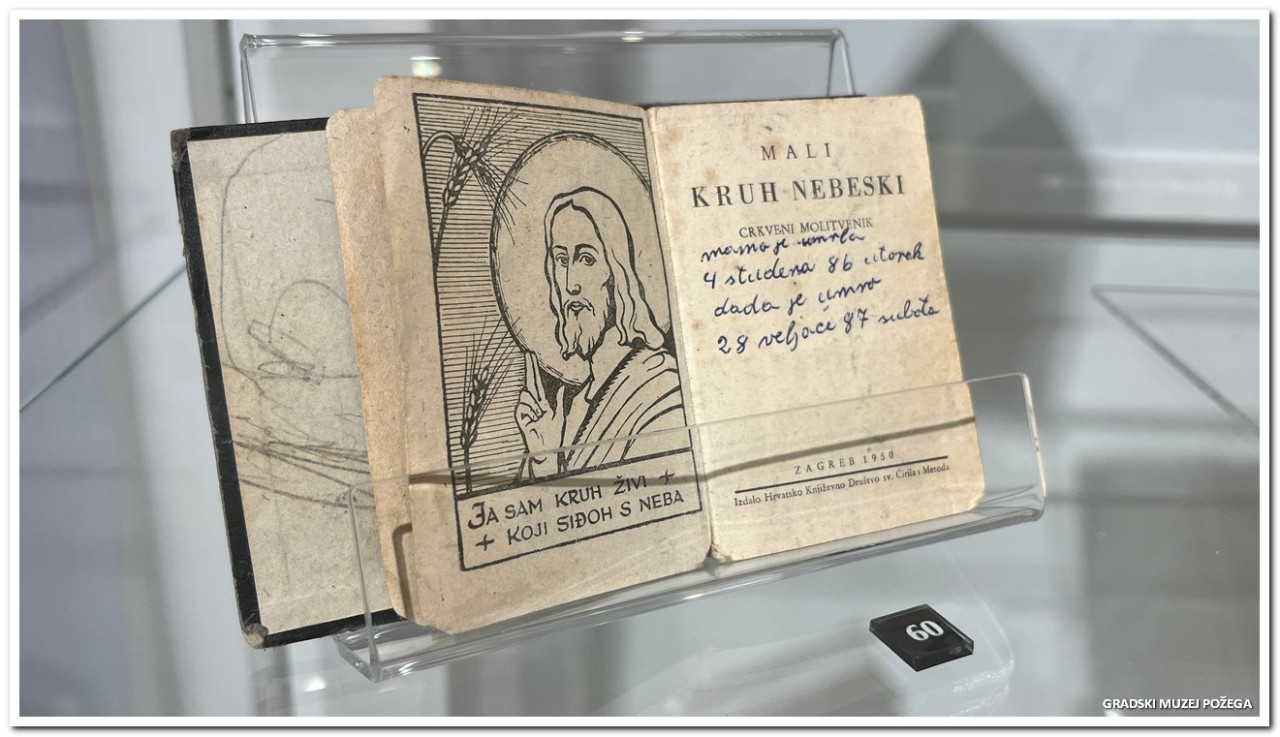 JA SAM KRUH ŽIVI +
+ KOJI SIĐOH S NEBA
MALI
KRUH NEBESKI
CRKVENI MOLITVENIK
mama je umrla
4 studena 86 utorak
dada je umro
28 veljače 87 subota
ZAGREB 1950
Izdalo Hrvatsko Književno Društvo sv. Ćirila i Metoda
60
GRADSKI MUZEJ POŽEGA